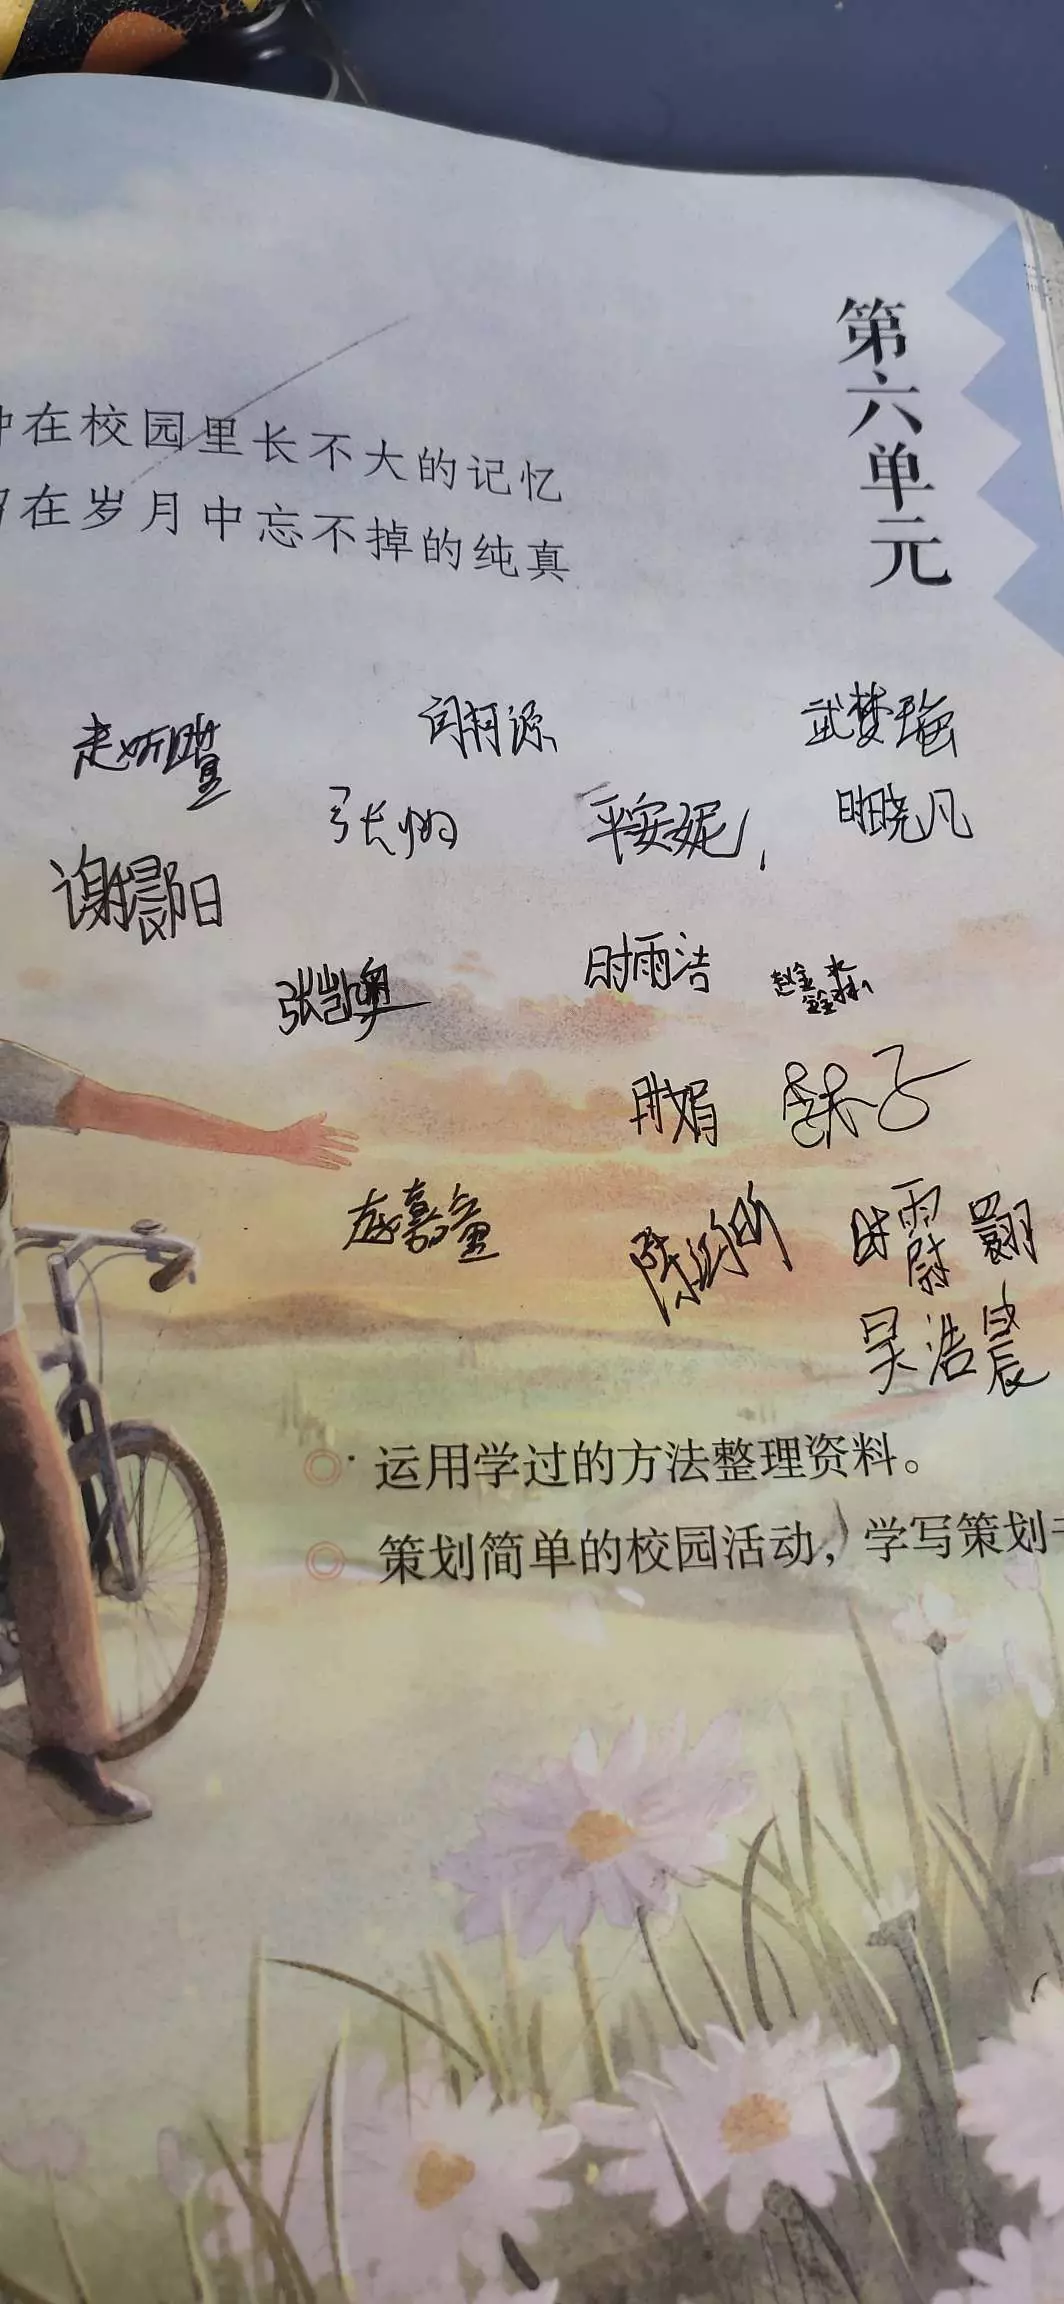 第六单元
在校园里长不大的记忆
在岁月中忘不掉的纯真
闫柯源
武梦瑶
张帅
平安妮
时晓凡
谢晨阳
张凯奥
时雨洁
赵鑫淼
时娟
陈
时霨翾
吴浩晨
运用学过的方法整理资料。
策划简单的校园活动，学写策划